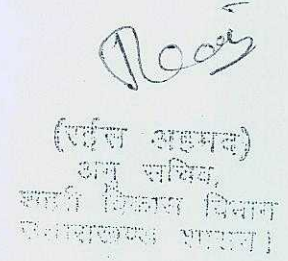 (रईस अहमद)
अनु सचिव,
विकास विभाग
उत्तराखण्ड शासन।